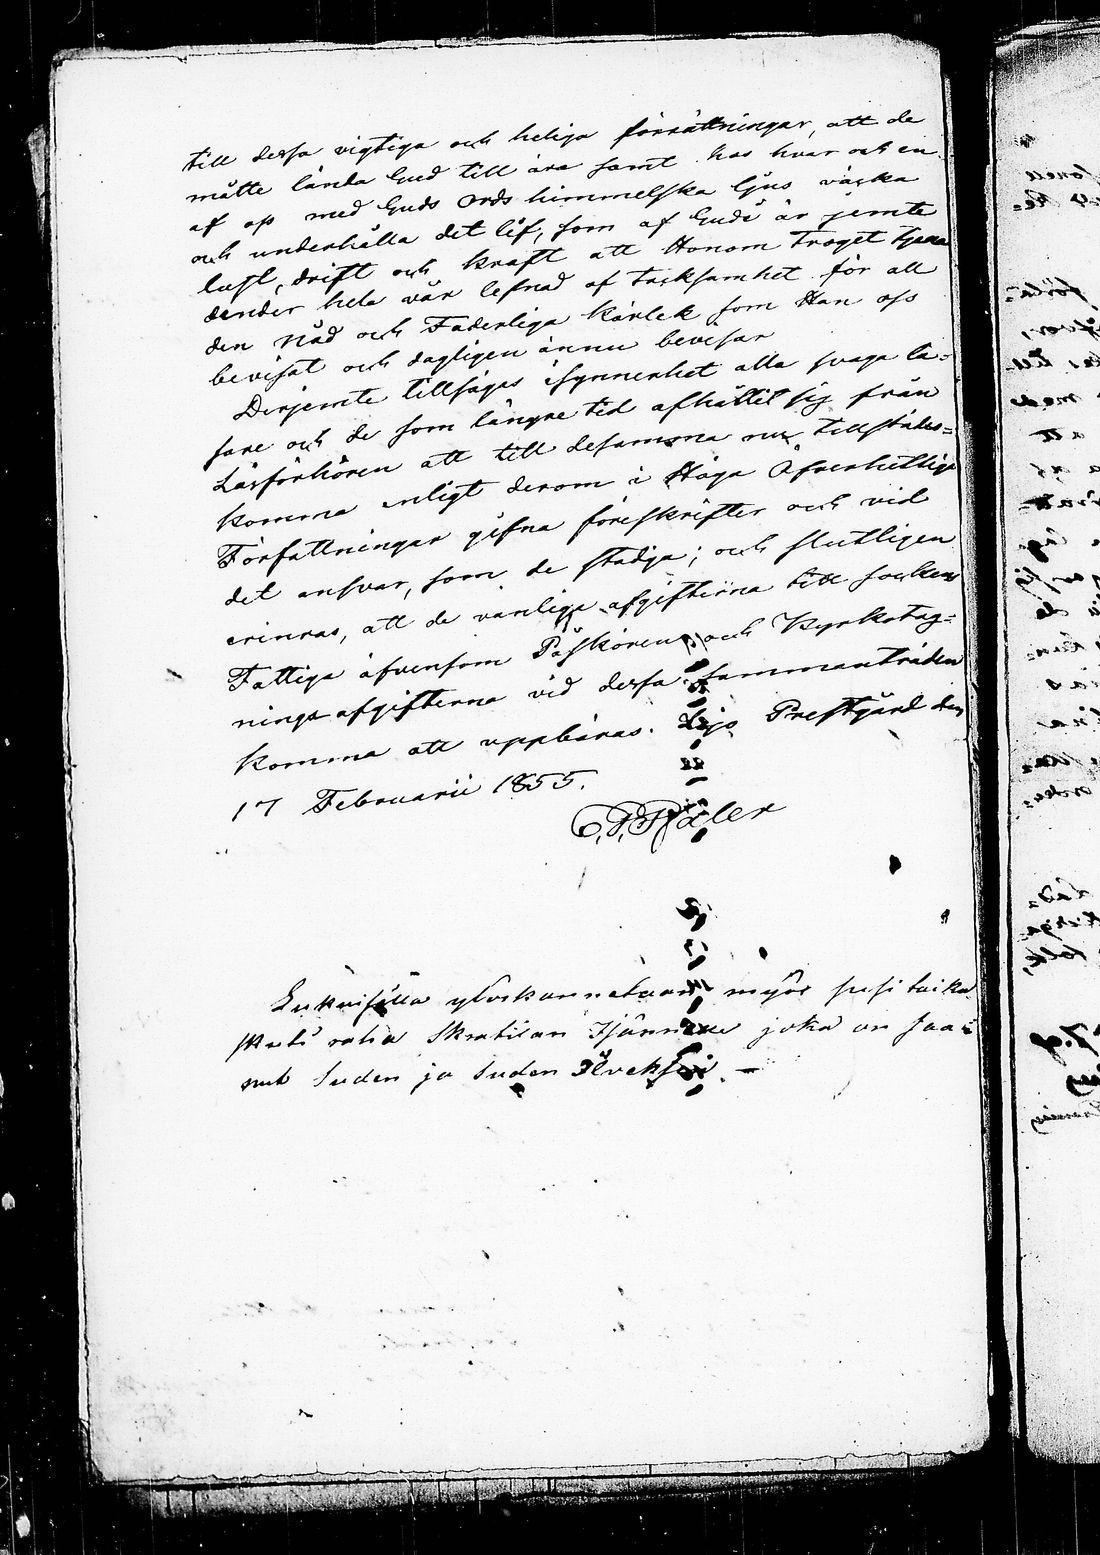 till dessa vigtiga och heliga förrättningar, att de
måtte lända Gud till ära samt hos hvar och en
af oss med Guds ords himmelska ljus väcka
och underhålla det lif, som af Gudi är jemte
lust, drift och kraft att Honom troget tjena
under hela vår lefnad af tacksamhet för all
den Nåd och Faderliga Kärlek som Han oss
bevisat och dagligen ännu bevisar
Derjemte tillsäges isynnerhet alla svaga lä=
sare och de som längre tid afhållit sig från
Läsförhören att till desamma nu tillstädes=
komma enligt derom i Höga Öfverhetliga
Författningar gifna föreskrifter och vid
det ansvar, som de stadga; och slutligen
erinras, att de vanliga afgifterna till sockens
Fattiga äfvensom Påskören och Kyrkotag=
nings afgifterna vid dessa sammanträden
komma att uppbäras. Prestgård den
17 Februarii 1855.
myös susi
raha joka on saa=
nut Suden ja Suden